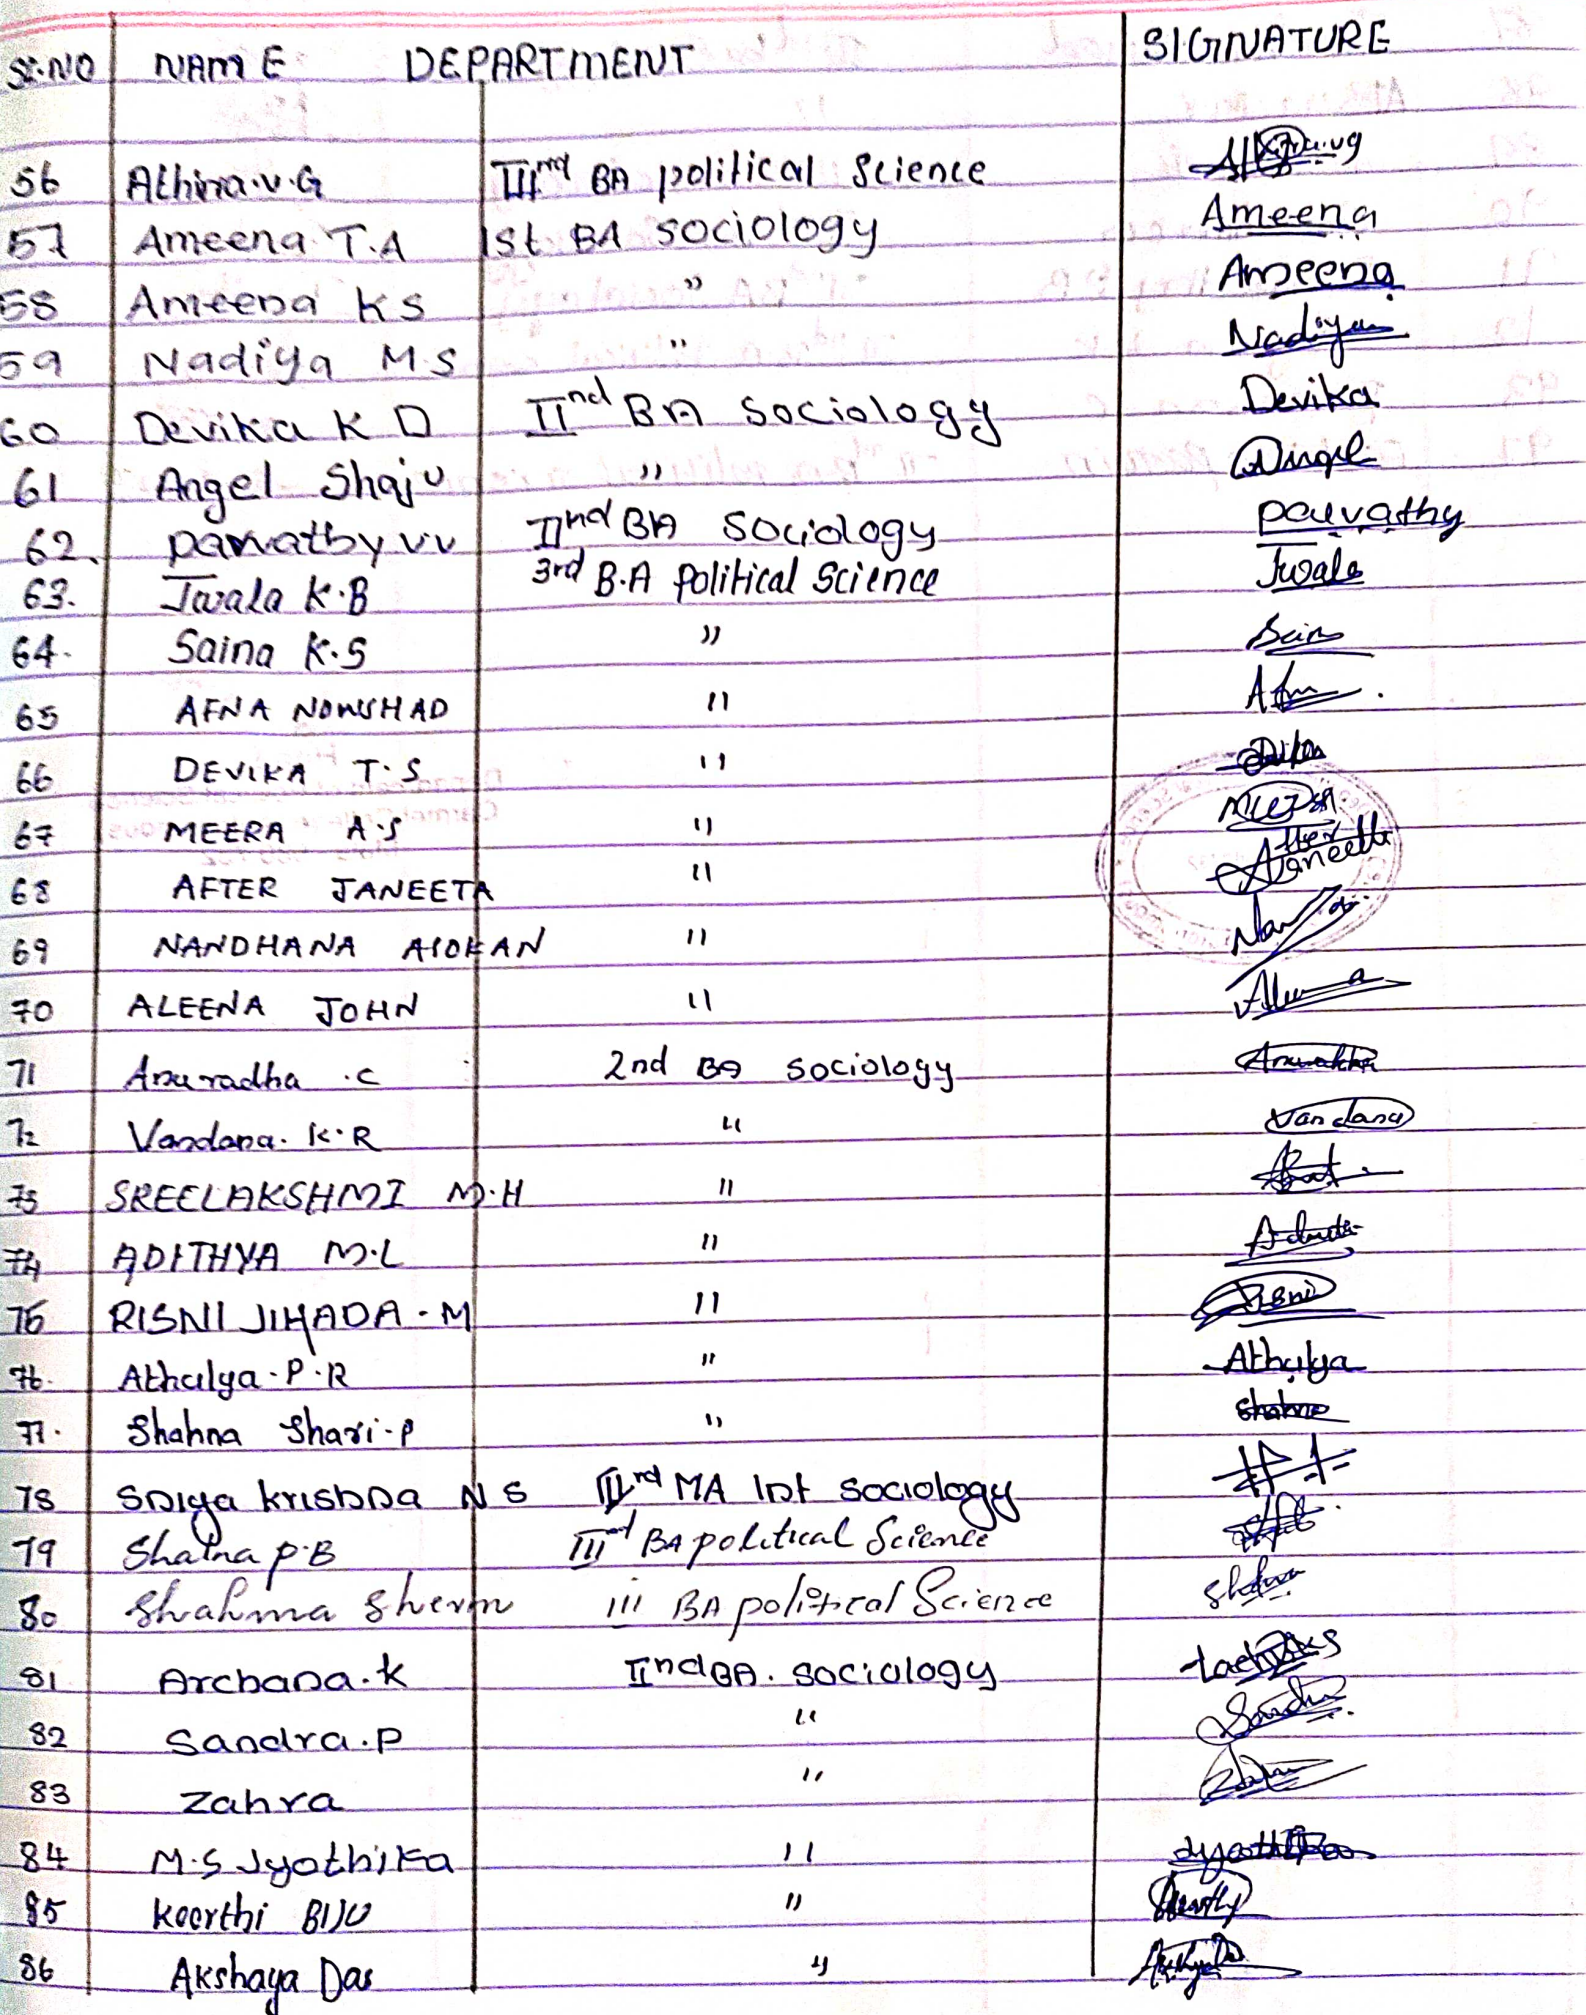 Sr.NO NAME DEPARTMENT SIGNATURE
56 Athira.V.G IIIrd BA political Science
57 Ameena T.A 1st BA sociology Ameena
58 Ameena K S " Ameena
59 Nadiya M.S " Nadiya
60 Devika K D IInd BA Sociology Devika
61 Angel Shaju " Angel
62. Parvathy V V IInd BA Sociology Parvathy
63. Jwala K.B 3rd B.A Political Science Jwala
64. Saina K.S "
65 AFNA NOWSHAD "
66 DEVIKA T.S "
67 MEERA A.S " Meera
68 AFTER JANEETA "
69 NANDHANA ASOKAN "
70 ALEENA JOHN "
71 Anuradha .C 2nd BA sociology
72 Vandana. K.R " Vandana
73 SREELAKSHMI M.H "
74 ADITHYA M.L "
75 RISNI JIHADA - M " Risni
76. Athulya. P. R " Athulya
77. Shahna Shari-P " Shahna
78 Sniya krishna N S IIIrd MA Int sociology
79 Shaina P.B IIIrd BA political Science
80 Shahma Sherin iii BA political Science
81 Archana.k IInd BA. sociology
82 Sandra.P " Sandra
83 Zahra "
84 M.S Jyothika " Jyothika
85 Keerthi BIJU "
86 Akshaya Das "